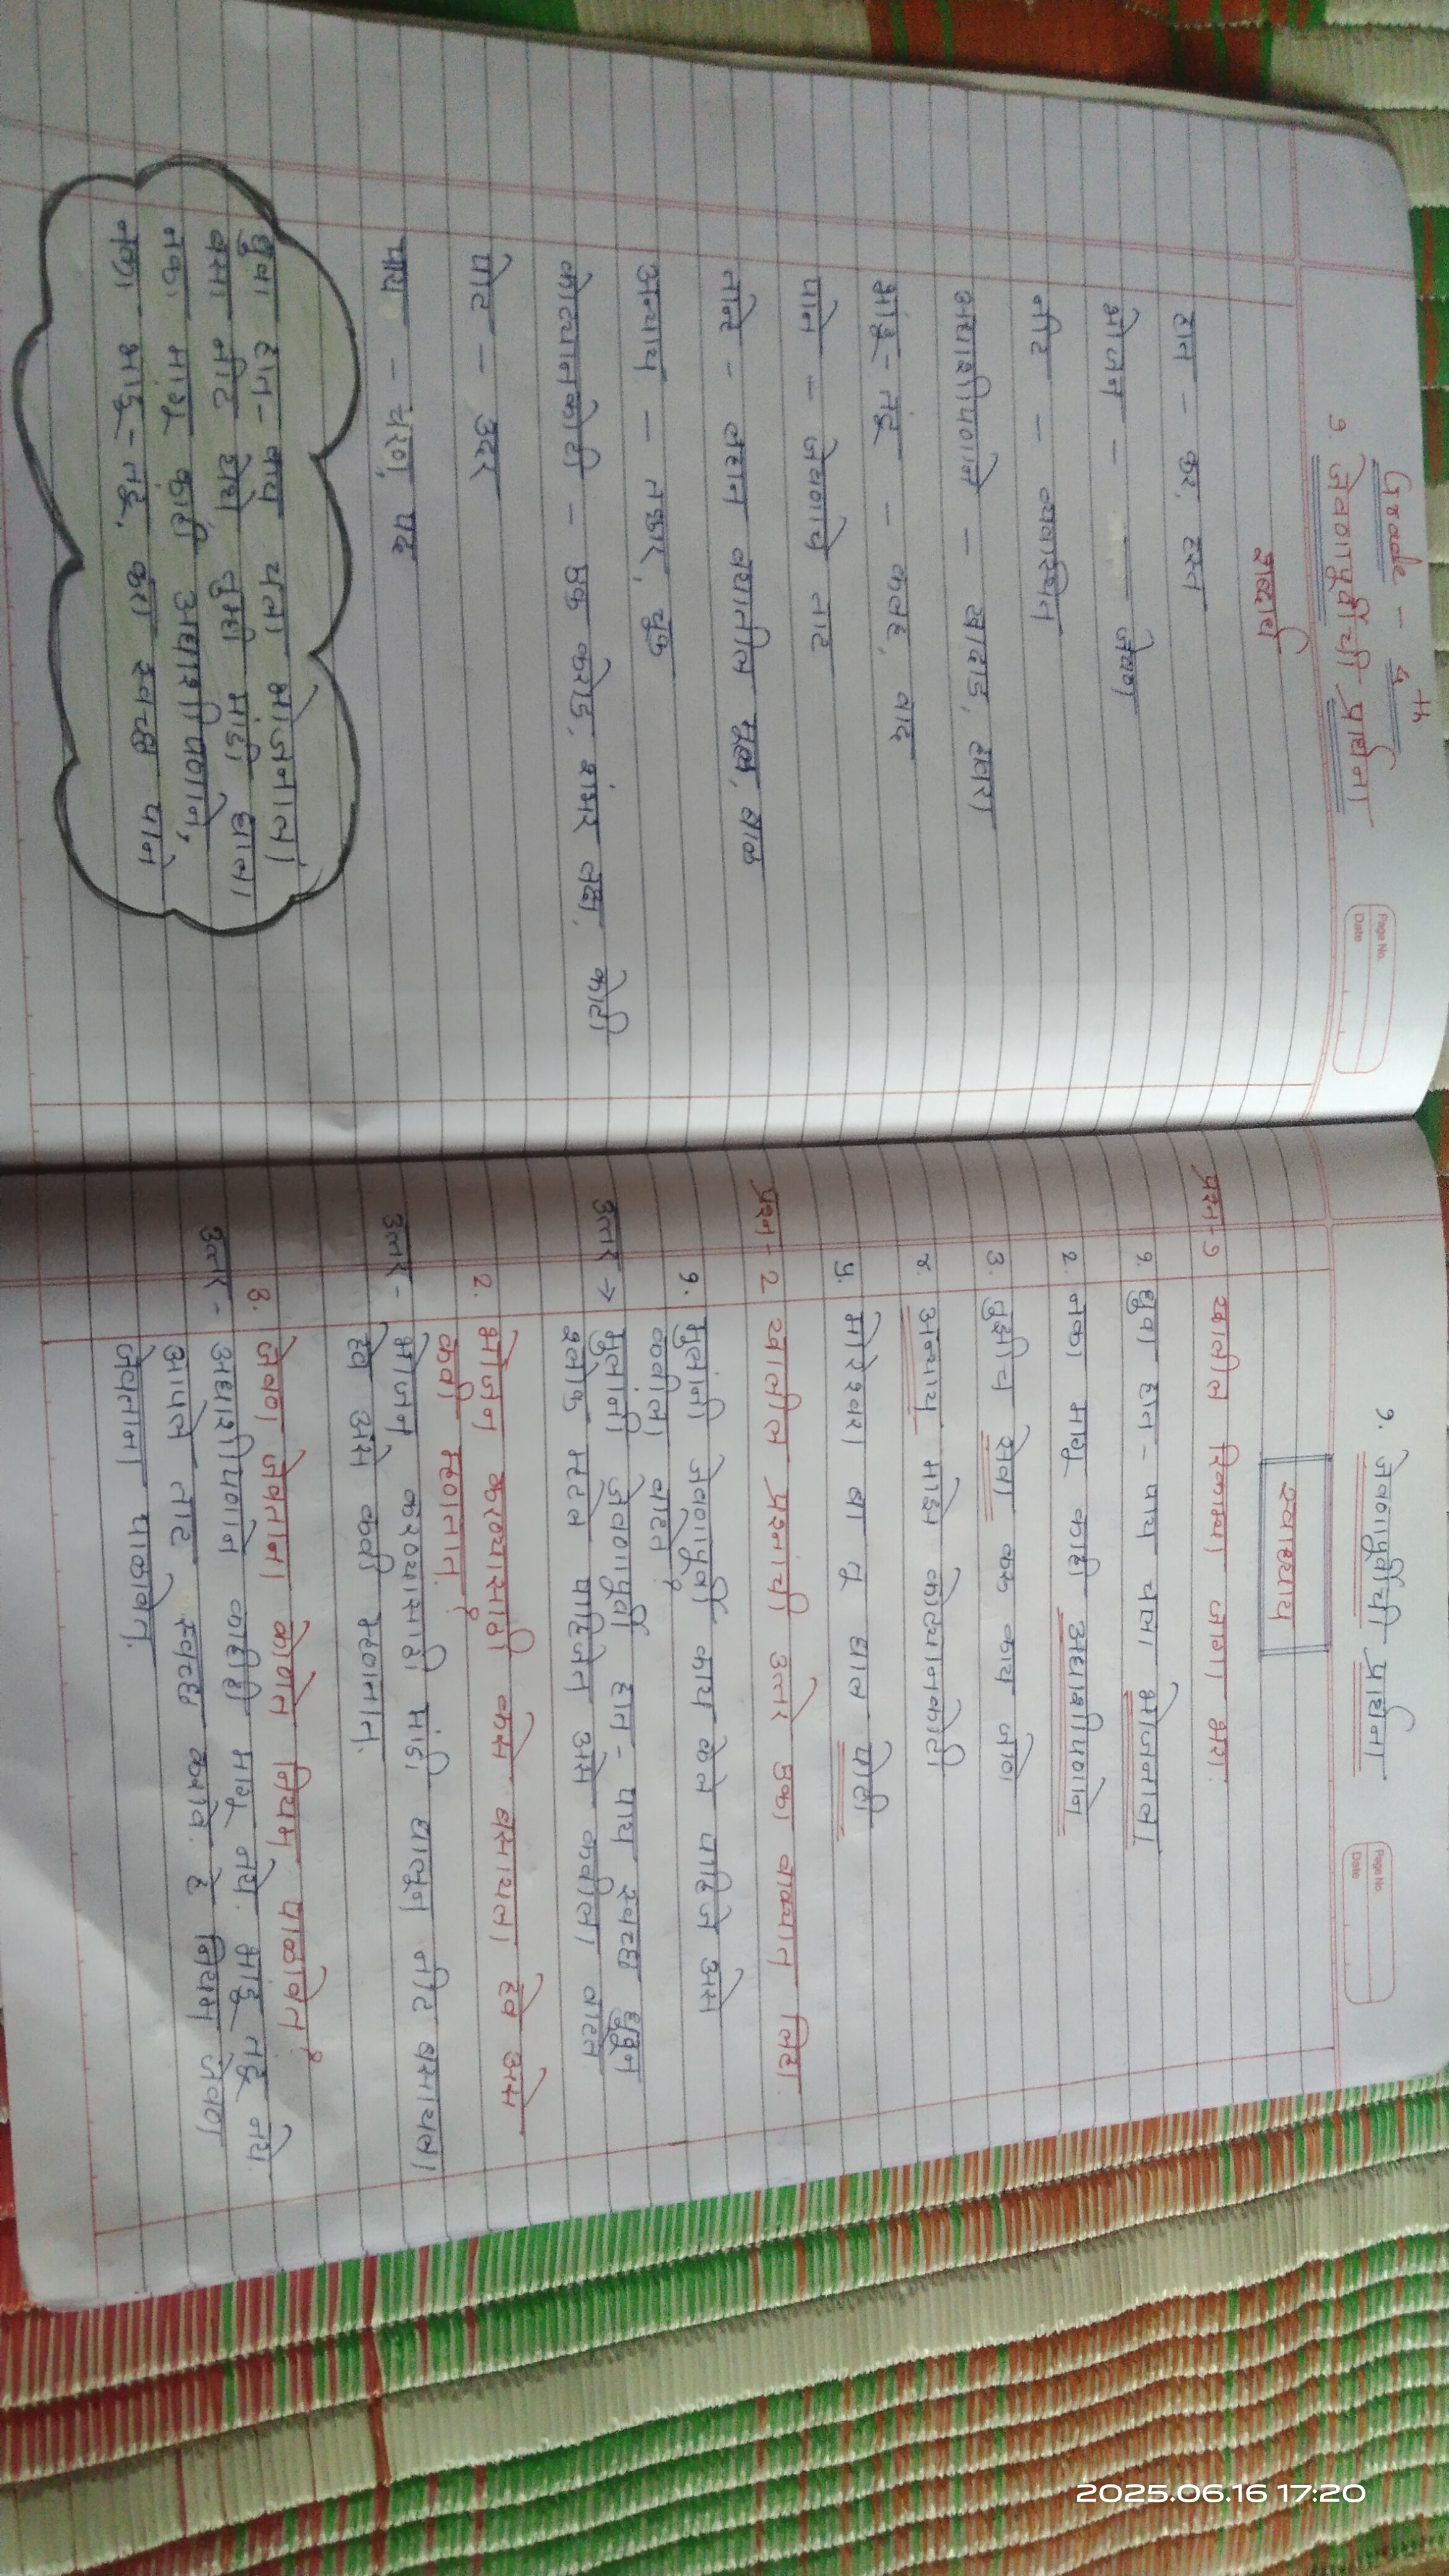 Grade - 4th
१. जेवणापूर्वीची प्रार्थना
Page No.
Date
शब्दार्थ
हात - कर, हस्त
भोजन - जेवण
नीट - व्यवस्थित
अधाशीपणाने - खादाड, हावरा
भांडू-तंडू - कलह, वाद
पाने - जेवणाचे ताट
तान्हे - लहान वयातील मूल, बाळ
अन्याय - तक्रार, चूक
कोट्यानकोटी - एक करोड, शंभर लक्ष, कोटी
पोट - उदर
पाय - चरण, पद
धुवा हात-पाय चला भोजनाला
बसा नीट घेवो तुम्ही मांडी घाला
नका मागू काही अधाशीपणाने,
नका भांडू-तंडू, करा स्वच्छ पाने
१. जेवणापूर्वीची प्रार्थना
Page No.
Date
स्वाध्याय
प्रश्न-१ खालील रिकाम्या जागा भरा.
१. धुवा हात-पाय चला भोजनाला
२. नका मागू काही अधाशीपणाने
३. तुझीच सेवा करू काय जाणे
४. अन्याय माझे कोट्यानकोटी
५. मोरेश्वरा बा तू घाल पोटी
प्रश्न-२ खालील प्रश्नांची उत्तरे एका वाक्यात लिहा.
१. मुलांनी जेवणापूर्वी काय केले पाहिजे असे
कवीला वाटते?
उत्तर → मुलांनी जेवणापूर्वी हात-पाय स्वच्छ धुवून
श्लोक म्हटले पाहिजेत असे कवीला वाटते.
२. भोजन करण्यासाठी कसे बसायला हवे असे
कवी म्हणतात?
उत्तर - भोजन करण्यासाठी मांडी घालून नीट बसायला
हवे असे कवी म्हणतात.
३. जेवण जेवताना कोणते नियम पाळावेत?
उत्तर - अधाशीपणाने काहीही मागू नये. भांडू तंडू नये.
आपले ताट स्वच्छ करावे. हे नियम जेवण
जेवताना पाळावेत.
2025.06.16 17:20